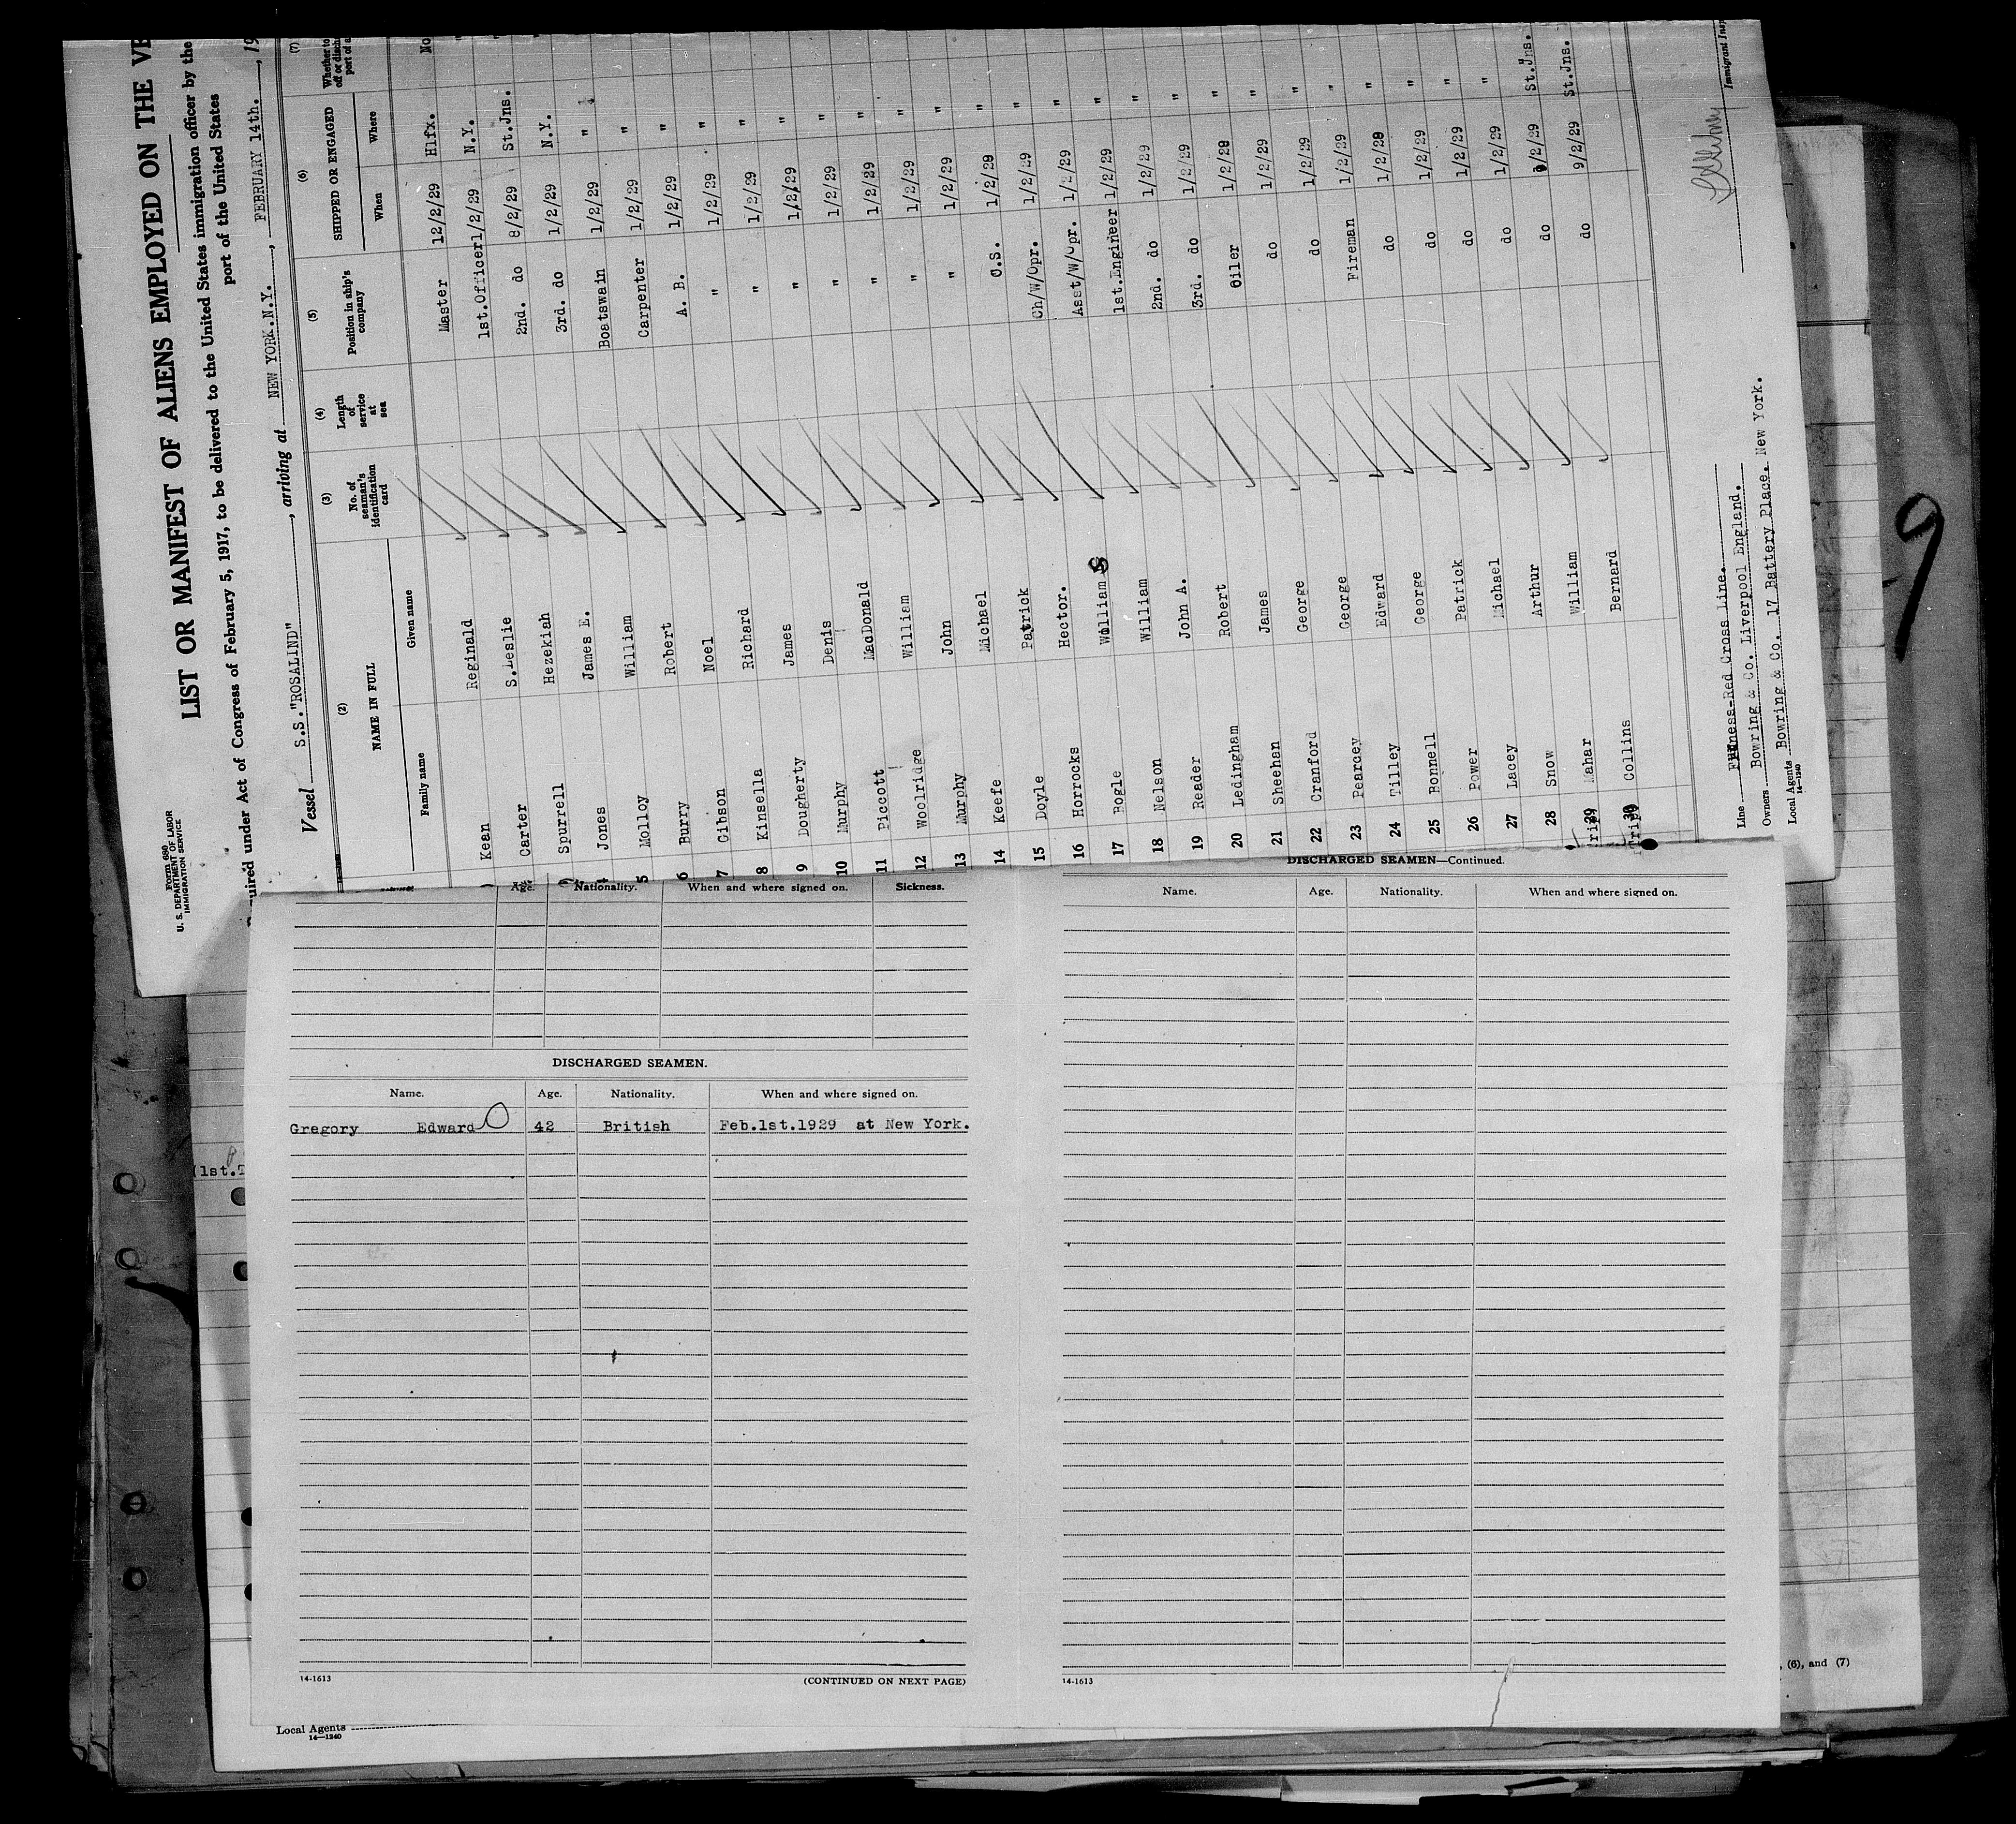 Form 680
U. S. DEPARTMENT OF LABOR
IMMIGRATION SERVICE
LIST OR MANIFEST OF ALIENS EMPLOYED ON THE VE
uired under Act of Congress of February 5, 1917, to be delivered to the United States immigration officer by the
port of the United States
Vessel S.S."ROSALIND", arriving at NEW YORK.N.Y., FEBRUARY 14th., 19
(2) (3) (4) (5) (6) (7)
NAME IN FULL
Family name Given name
No. of seaman's identification card
Length of service at sea
Position in ship's company
SHIPPED OR ENGAGED
When Where
Whether to
off or disch
port of a
Kean Reginald Master 12/2/29 Hlfx. No
Carter S.Leslie 1st.Officer 1/2/29 N.Y. "
Spurrell Hezekiah 2nd. do 8/2/29 St.Jns. "
Jones James E. 3rd. do 1/2/29 N.Y. "
5 Molloy William Boatswain 1/2/29 "
6 Burry Robert Carpenter 1/2/29 "
7 Gibson Noel A. B. 1/2/29 "
8 Kinsella Richard " 1/2/29 "
9 Dougherty James " 1/2/29 "
10 Murphy Denis " 1/2/29 "
11 Piccott MacDonald " 1/2/29 "
12 Woolridge William " 1/2/29 "
13 Murphy John " 1/2/29 "
14 Keefe Michael " 1/2/29 "
15 Doyle Patrick O.S. 1/2/29 "
16 Horrocks Hector. Ch/W/Opr. 1/2/29 "
17 Bogle William S Asst/W/Opr. 1/2/29 "
18 Nelson William 1st.Engineer 1/2/29 "
19 Reader John A. 2nd. do 1/2/29 "
20 Ledingham Robert 3rd. do 1/2/29 "
21 Sheehan James Oiler 1/2/29 "
22 Cranford George do 1/2/29 "
23 Pearcey George do 1/2/29 "
24 Tilley Edward Fireman 1/2/29 "
25 Bonnell George do 1/2/29 "
26 Power Patrick do 1/2/29 "
27 Lacey Michael do 1/2/29 "
28 Snow Arthur do 1/2/29 "
29 Mahar William do 9/2/29 St.Jns.
30 Collins Bernard do 9/2/29 St.Jns.
Line Furness-Red Cross Line.
Owners Bowring & Co. Liverpool England.
Local Agents Bowring & Co. 17 Battery Place. New York.
14-1240
Immigrant Insp
9
Age. Nationality. When and where signed on. Sickness.
DISCHARGED SEAMEN.
Name. Age. Nationality. When and where signed on.
Gregory Edward 42 British Feb.1st.1929 at New York.
14-1613 (CONTINUED ON NEXT PAGE)
DISCHARGED SEAMEN—Continued.
Name. Age. Nationality. When and where signed on.
14-1613
(1st.T
, (6), and (7)
Local Agents
14—1240